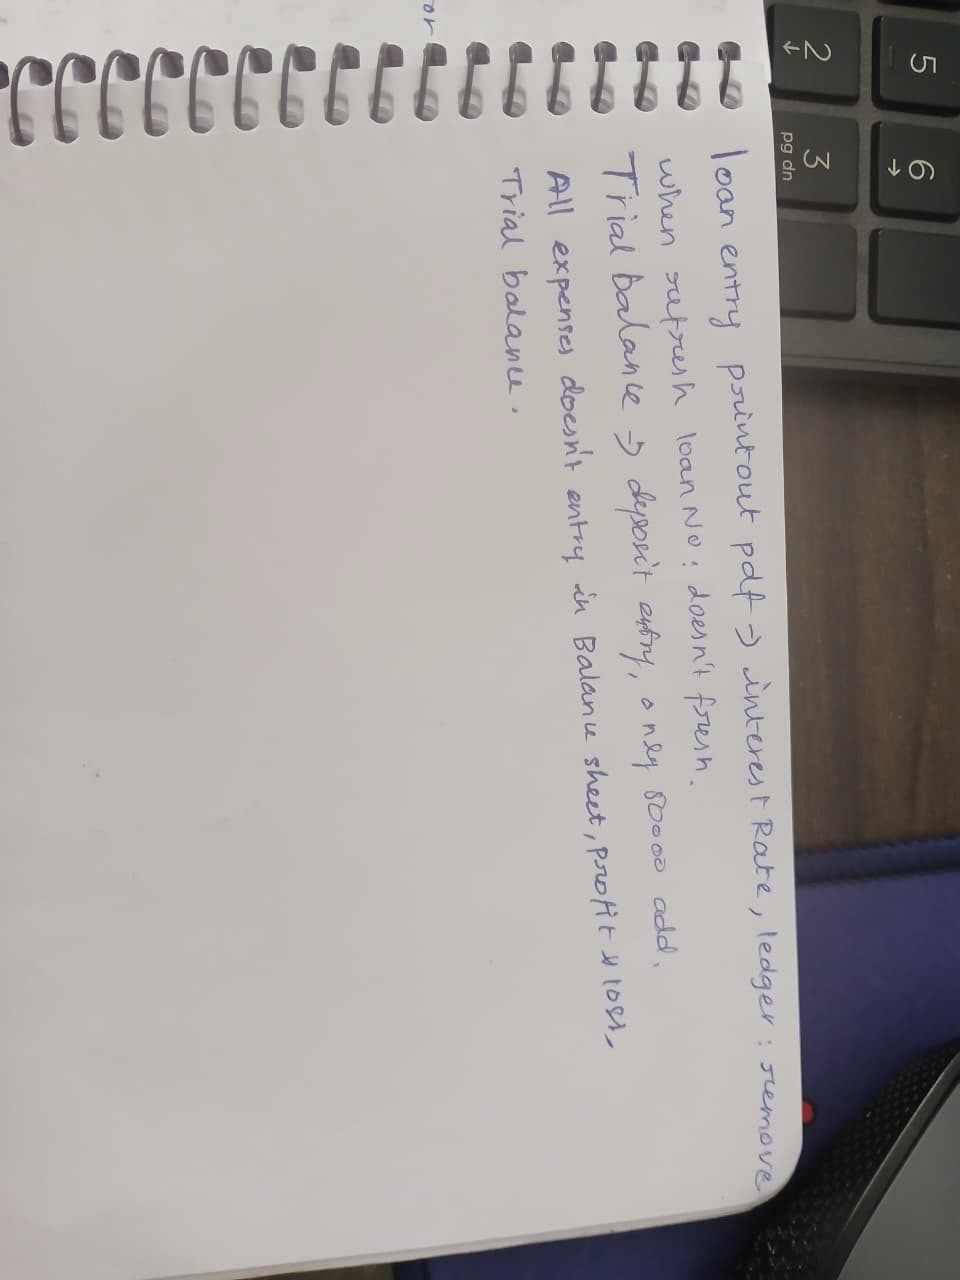 loan entry printout pdf → interest Rate, ledger : remove
when refresh loan No : doesn't fresh.
Trial balance → deposit entry, only 80000 add.
All expenses doesn't entry in Balance sheet, profit & loss,
Trial balance.
or
5
6 →
2 ↓
3 pg dn